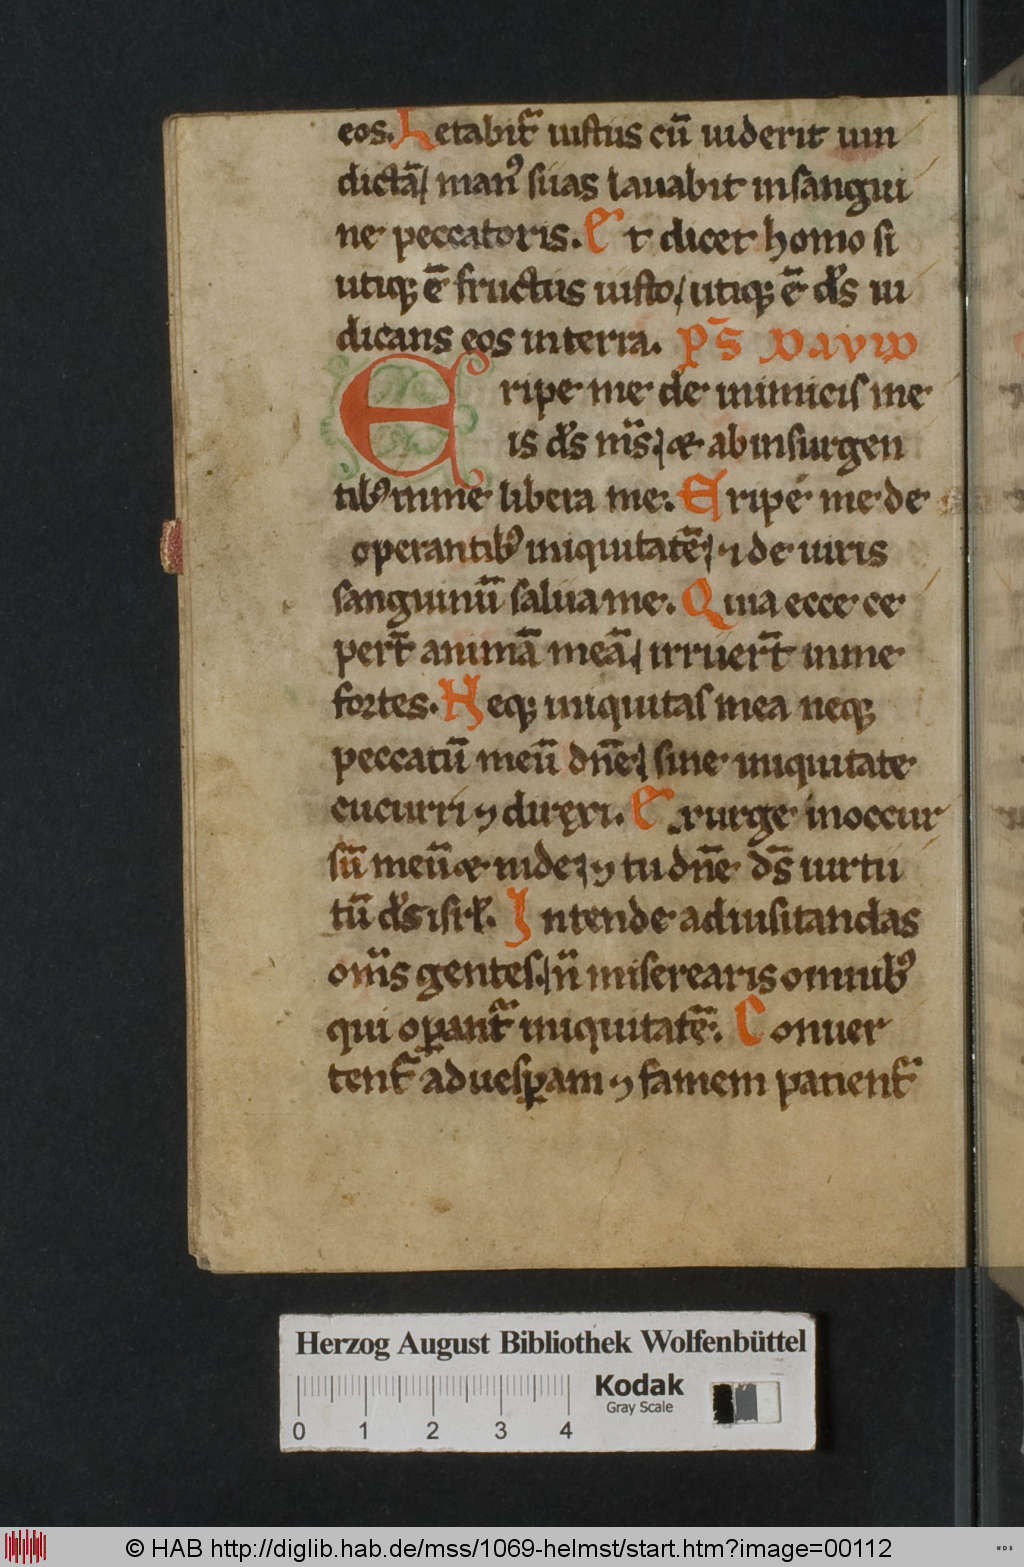 eos. Letabit᷑ iustus cū uiderit uin
dictā / manꝰ suas lauabit in sangui
ne peccatoris. Et dicet homo si
utiqꝫ ē fructus iusto / utiqꝫ ē ds̄ iu
dicans eos in terra. ps̄ DAVID
Eripe me de inimicis me
is ds̄ ms̄ / & ab insurgen
tibꝰ in me libera me. Eripe me de
operantibꝰ iniquitatē / ⁊ de uiris
sanguinū salua me. Quia ecce ce
pert̄ animā meā / irruert̄ in me
fortes. Neqꝫ iniquitas mea neqꝫ
peccatū meū dn̄e / sine iniquitate
cucurri ⁊ direxi. Exurge in occur
sū meū & uide / ⁊ tu dn̄e ds̄ uirtu
tū ds̄ isrl̄. Intende ad uisitandas
om̄s gentes. / n̄ miserearis omnibꝰ
qui oꝑant᷑ iniquitatē. Conuer
tent᷑ ad uesꝑam ⁊ famem patient᷑
Herzog August Bibliothek Wolfenbüttel
Kodak
Gray Scale
0 1 2 3 4
© HAB http://diglib.hab.de/mss/1069-helmst/start.htm?image=00112